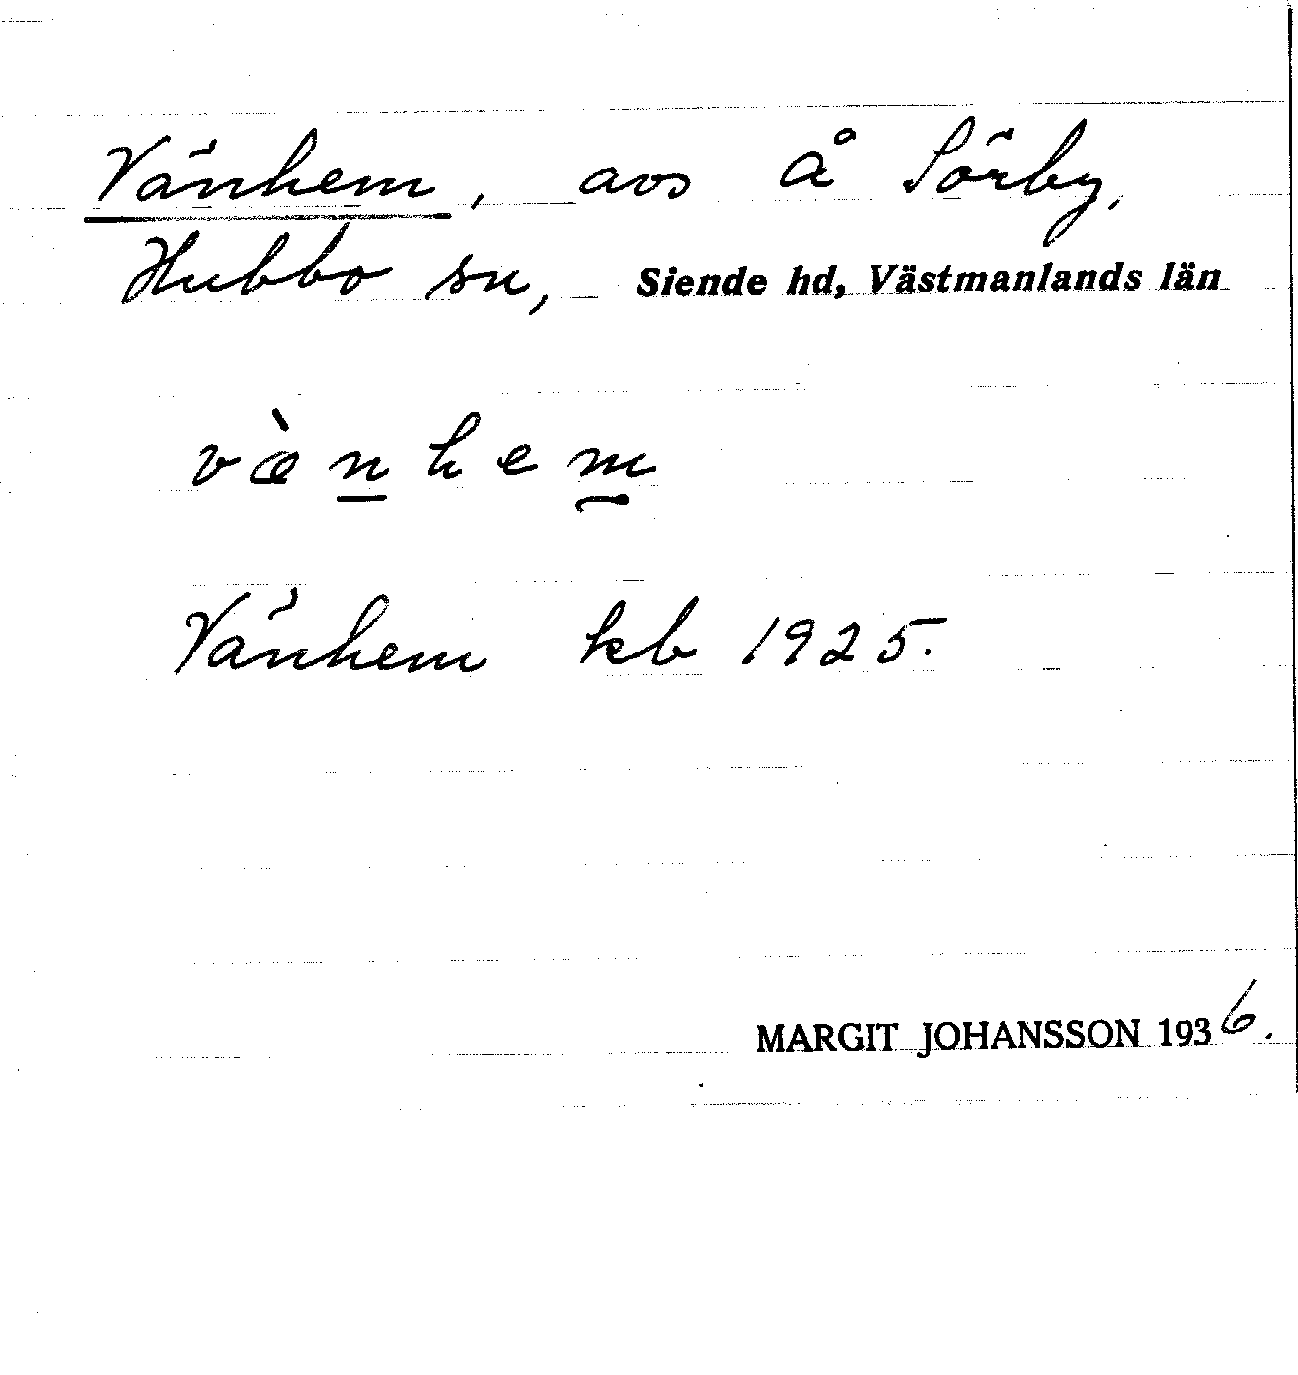 Vänhem, avs å Sörby,
Hubbo sn, Siende hd, Västmanlands län
vὰnhem
Vänhem kb 1925.
MARGIT JOHANSSON 1936.